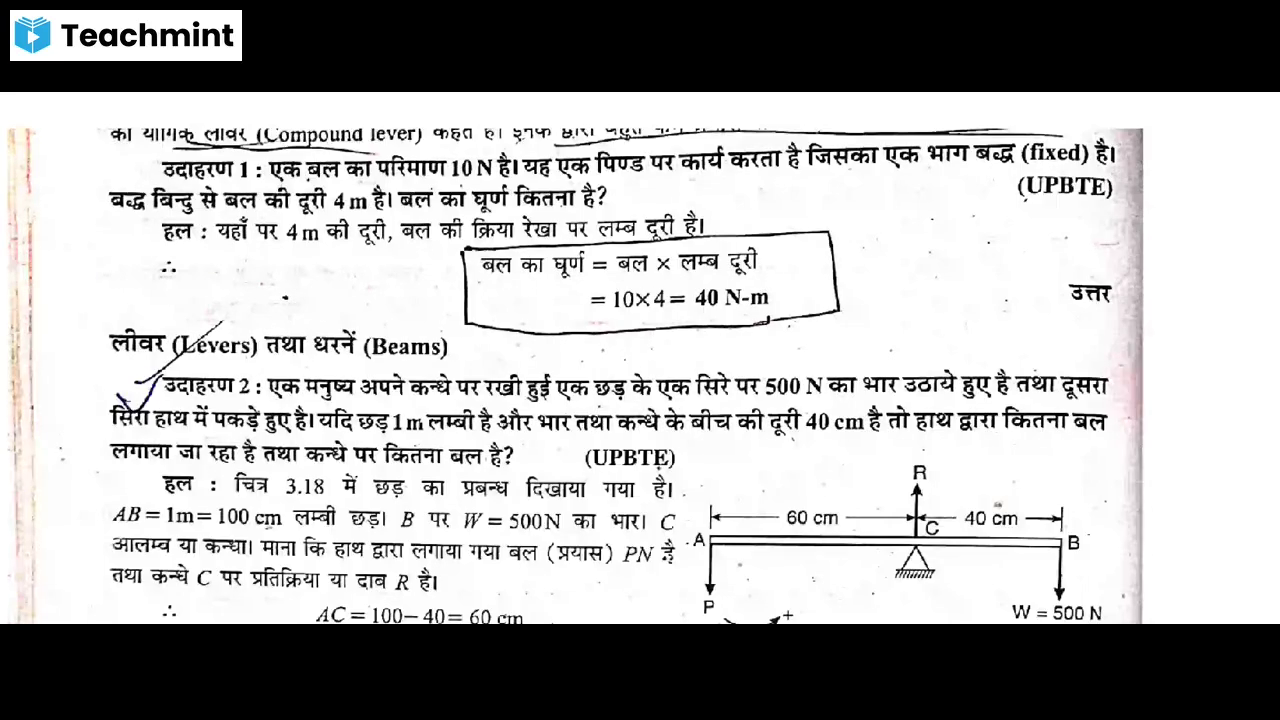 Teachmint
को यौगिक लीवर (Compound lever) कहते हैं। इनके द्वारा बहुत
उदाहरण 1 : एक बल का परिमाण 10 N है। यह एक पिण्ड पर कार्य करता है जिसका एक भाग बद्ध (fixed) है।
बद्ध बिन्दु से बल की दूरी 4 m है। बल का घूर्ण कितना है? (UPBTE)
हल : यहाँ पर 4 m की दूरी, बल की क्रिया रेखा पर लम्ब दूरी है।
∴ बल का घूर्ण = बल × लम्ब दूरी
= 10×4 = 40 N-m उत्तर
लीवर (Levers) तथा धरनें (Beams)
उदाहरण 2 : एक मनुष्य अपने कन्धे पर रखी हुई एक छड़ के एक सिरे पर 500 N का भार उठाये हुए है तथा दूसरा
सिरा हाथ में पकड़े हुए है। यदि छड़ 1 m लम्बी है और भार तथा कन्धे के बीच की दूरी 40 cm है तो हाथ द्वारा कितना बल
लगाया जा रहा है तथा कन्धे पर कितना बल है? (UPBTE)
हल : चित्र 3.18 में छड़ का प्रबन्ध दिखाया गया है।
AB = 1m = 100 cm लम्बी छड़। B पर W = 500N का भार। C
आलम्ब या कन्धा। माना कि हाथ द्वारा लगाया गया बल (प्रयास) PN है
तथा कन्धे C पर प्रतिक्रिया या दाब R है।
∴ AC = 100 – 40 = 60 cm
R
60 cm C 40 cm
A B
P W = 500 N
+